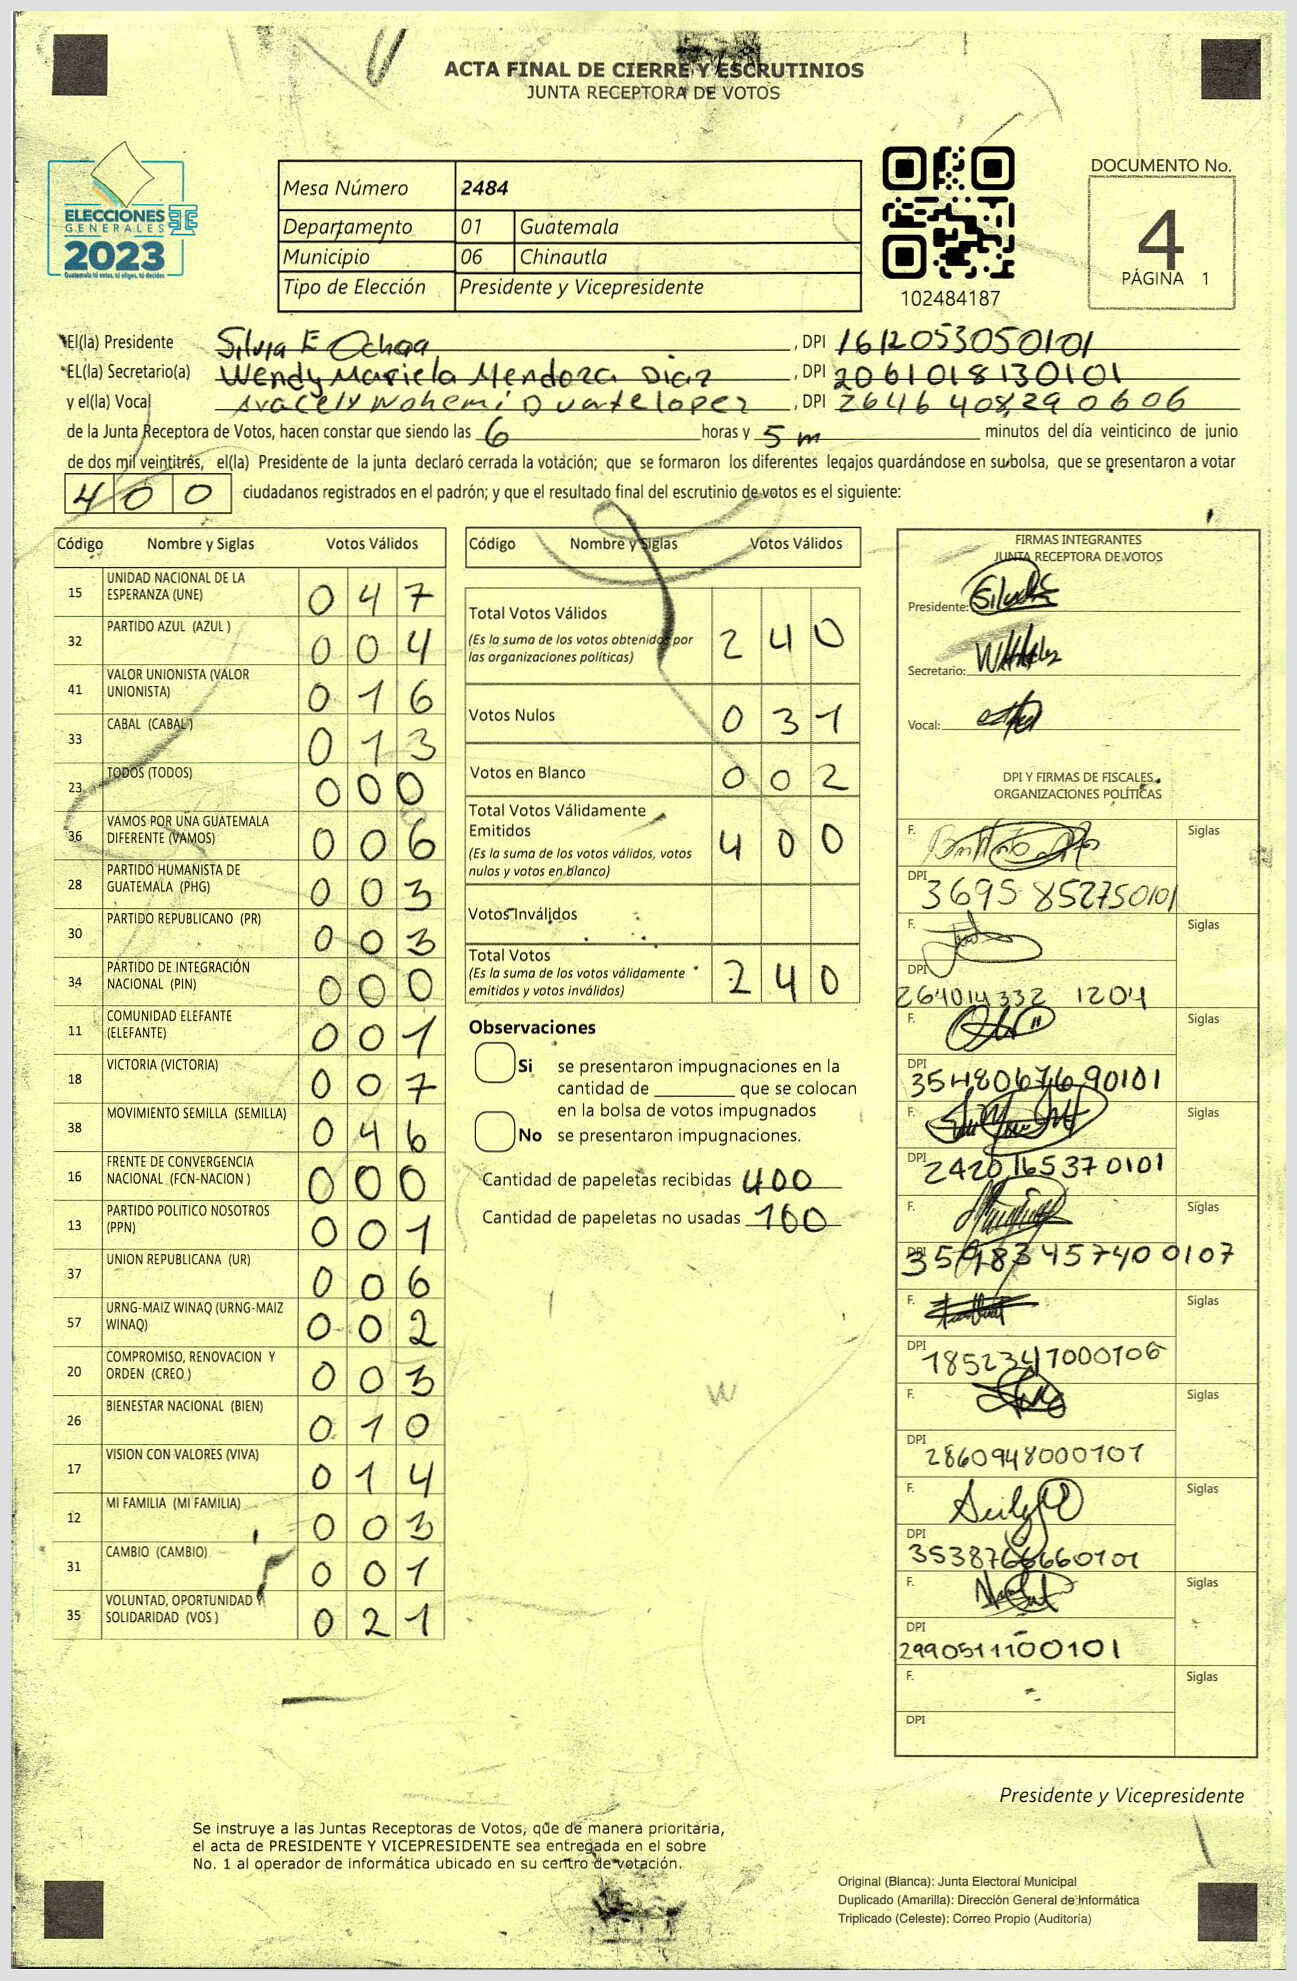 ACTA FINAL DE CIERRE Y ESCRUTINIOS
JUNTA RECEPTORA DE VOTOS
ELECCIONES
GENERALES
2023
Guatemala tú votas, tú eliges, tú decides
Mesa Número 2484
Departamento 01 Guatemala
Municipio 06 Chinautla
Tipo de Elección Presidente y Vicepresidente
102484187
DOCUMENTO No.
4
PÁGINA 1
El(la) Presidente Silvia E Ochoa, DPI 1612053050101
EL(la) Secretario(a) Wendy Mariela Mendoza Diaz, DPI 2061018130101
y el(la) Vocal Aracely Nohemi Duarte lopez, DPI 2646408290606
de la Junta Receptora de Votos, hacen constar que siendo las 6 horas y 5 m minutos del día veinticinco de junio
de dos mil veintitrés, el(la) Presidente de la junta declaró cerrada la votación; que se formaron los diferentes legajos guardándose en su bolsa, que se presentaron a votar
400 ciudadanos registrados en el padrón; y que el resultado final del escrutinio de votos es el siguiente:
Código Nombre y Siglas Votos Válidos
15 UNIDAD NACIONAL DE LA ESPERANZA (UNE) 047
32 PARTIDO AZUL (AZUL ) 004
41 VALOR UNIONISTA (VALOR UNIONISTA) 016
33 CABAL (CABAL ) 013
23 TODOS (TODOS) 000
36 VAMOS POR UNA GUATEMALA DIFERENTE (VAMOS) 006
28 PARTIDO HUMANISTA DE GUATEMALA (PHG) 003
30 PARTIDO REPUBLICANO (PR) 003
34 PARTIDO DE INTEGRACIÓN NACIONAL (PIN) 000
11 COMUNIDAD ELEFANTE (ELEFANTE) 001
18 VICTORIA (VICTORIA) 007
38 MOVIMIENTO SEMILLA (SEMILLA) 046
16 FRENTE DE CONVERGENCIA NACIONAL (FCN-NACION ) 000
13 PARTIDO POLITICO NOSOTROS (PPN) 001
37 UNION REPUBLICANA (UR) 006
57 URNG-MAIZ WINAQ (URNG-MAIZ WINAQ) 002
20 COMPROMISO, RENOVACION Y ORDEN (CREO ) 003
26 BIENESTAR NACIONAL (BIEN) 010
17 VISION CON VALORES (VIVA) 014
12 MI FAMILIA (MI FAMILIA) 003
31 CAMBIO (CAMBIO) 001
35 VOLUNTAD, OPORTUNIDAD Y SOLIDARIDAD (VOS ) 021
Código Nombre y Siglas Votos Válidos
Total Votos Válidos 240
(Es la suma de los votos obtenidos por
las organizaciones políticas)
Votos Nulos 031
Votos en Blanco 002
Total Votos Válidamente
Emitidos 400
(Es la suma de los votos válidos, votos
nulos y votos en blanco)
Votos Inválidos
Total Votos 240
(Es la suma de los votos válidamente
emitidos y votos inválidos)
Observaciones
Si se presentaron impugnaciones en la
cantidad de ________ que se colocan
en la bolsa de votos impugnados
No se presentaron impugnaciones.
Cantidad de papeletas recibidas 400
Cantidad de papeletas no usadas 160
FIRMAS INTEGRANTES
JUNTA RECEPTORA DE VOTOS
Presidente:
Secretario:
Vocal:
DPI Y FIRMAS DE FISCALES
ORGANIZACIONES POLÍTICAS
F. Siglas
DPI 3695 852750101
F. Siglas
DPI 264014332 1204
F. Siglas
DPI 3548067690101
F. Siglas
DPI 2420165370101
F. Siglas
DPI
F. Siglas
DPI 1852347000106
F. Siglas
DPI 2860948000101
F. Siglas
DPI 3538766660101
F. Siglas
DPI 2990511100101
F. Siglas
DPI
Presidente y Vicepresidente
Se instruye a las Juntas Receptoras de Votos, que de manera prioritaria,
el acta de PRESIDENTE Y VICEPRESIDENTE sea entregada en el sobre
No. 1 al operador de informática ubicado en su centro de votación.
Original (Blanca): Junta Electoral Municipal
Duplicado (Amarilla): Dirección General de Informática
Triplicado (Celeste): Correo Propio (Auditoría)